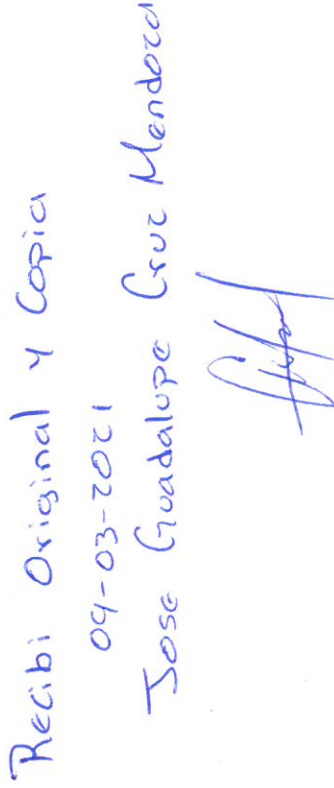 Recibi Original y Copia
09-03-2021
Jose Guadalupe Cruz Mendoza